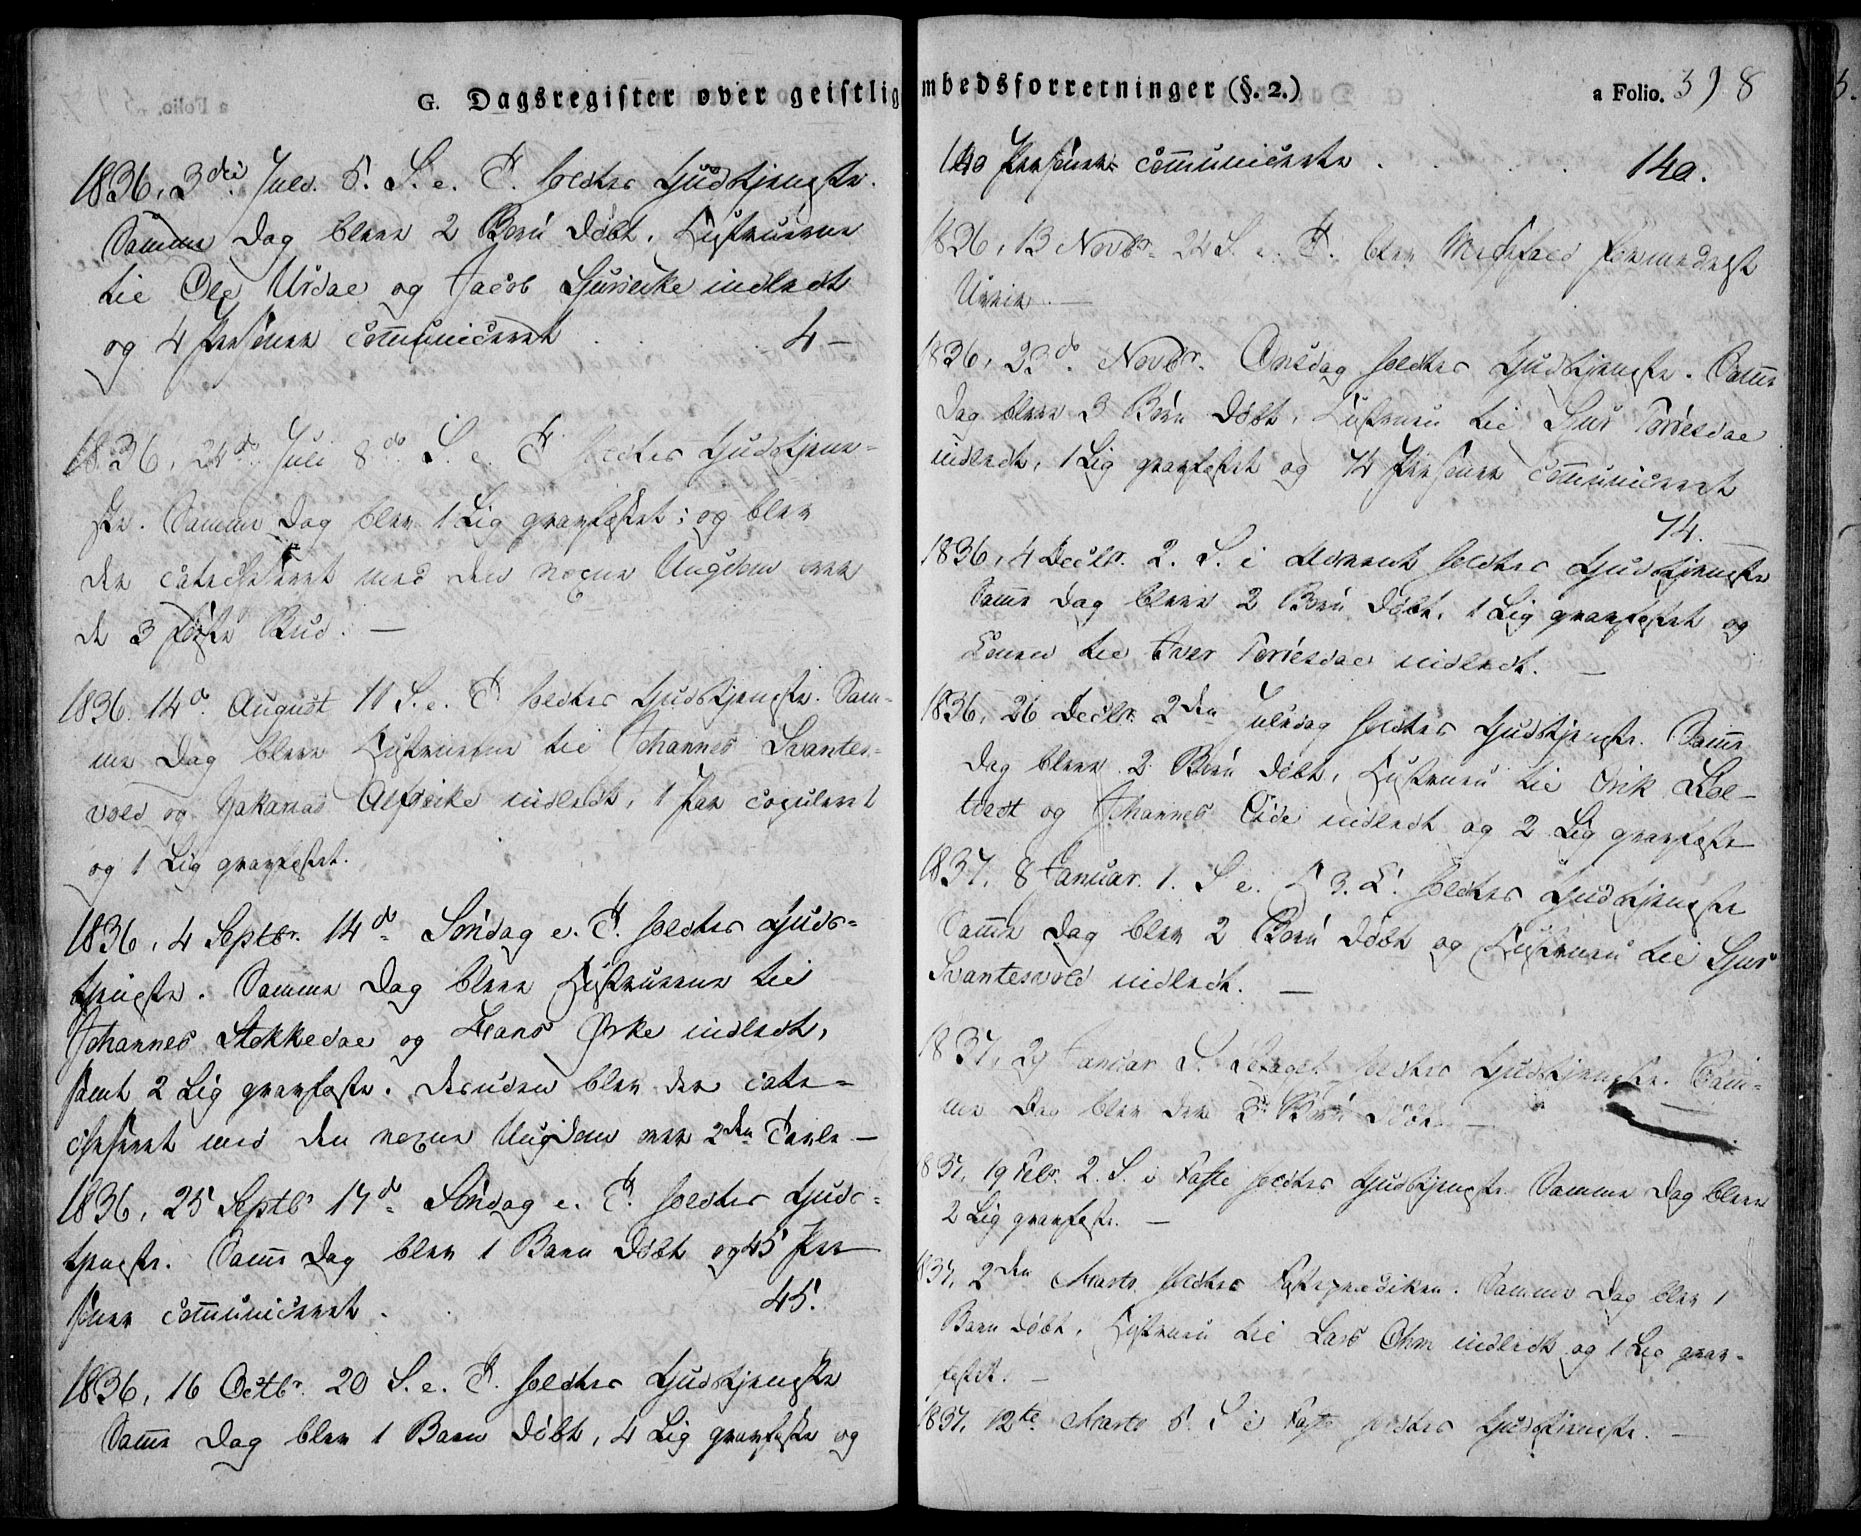 G. Dagsregister over geistlig
1836, 3die Juli. 5. S. e. T. holdtes Gudstjeneste.
Samme Dag bleve 2 Børn døbt, Hustruerne
til Ole Urdal og Jacob indledt
og 4 Personer communiceret . . . 4 —
1836, 24de Juli 8de S. e. T. holdtes Gudstjene-
ste. Samme Dag blev 1 Lig gravfæstet; og blev
der catechiseret med den voxne Ungdom over
de 3 første Bud. —
1836. 14de August 11 S. e. T. holdtes Gudstjeneste. Sam-
me Dag bleve Hustruerne til Johannes Svantes-
vold og Zakarias indledt, 1 Par copuleret
og 1 Lig gravfæstet.
1836, 4 Septbr. 14de Søndag e. T. holdtes Guds-
tjeneste. Samme Dag bleve Hustruerne til
Johannes Stokkedal og Hans Ørke indledt,
samt 2 Lig gravfæste. Desuden blev der cate-
chiseret med den voxne Ungdom over 2den Parle—
1836, 25 Septbr 17de Søndag e. T. holdtes Guds-
tjeneste. Samme Dag blev 1 Barn døbt og 45 Per
soner communiceret . 45.
1836, 16 Octbr. 20 S. e. T. holdtes Gudstjeneste
Samme Dag blev 1 Barn døbt, 4 Lig gravfæste og
mbedsforretninger (§. 2.)
a Folio. 398
140 Personer communicerte . . . 140.
1836, 13 Novbr. 24 S. e. T. blev Messefald formedelst
Uveir. —
1836, 23de Novbr. Onsdag holdtes Gudstjeneste. Samme
Dag bleve 3 Børn døbt, Hustruen til Sjur Torrisdal
indledt, 1 Lig gravfæstet og 74 Personer communiceret
74.
1836, 4 Decbr. 2. S. i Advent holdtes Gudstjeneste
Samme Dag bleve 2 Børn døbt, 1 Lig gravfæstet og
Konen til Iver Torrisdal indledt. —
1836, 26 Decbr. 2den Juledag holdtes Gudstjeneste. Samme
Dag bleve 2 Børn døbt, Hustruen til Erik Hol-
tvedt og Johannes Eide indledt og 2 Lig gravfæste
1837, 8 Januar. 1. S e. H. 3. K. holdtes Gudstjeneste
Samme Dag blev 2 Børn døbt og Hustruen til Sjur
Svantesvold indledt. —
1837, 29 Januar S. holdtes Gudstjeneste. Sam-
me Dag blev der 3 Børn døbt —
1837, 19 Febr. 2. S. i Faste holdtes Gudstjeneste. Samme Dag bleve
2 Lig gravfæste. —
1837, 2den Marts holdtes Fasteprædiken. Samme Dag blev 1
Barn døbt, Hustruen til Lars Ohm indledt og 1 Lig grav-
fæstet. —
1837, 12te Marts 5. S i Faste holdtes Gudstjeneste. —